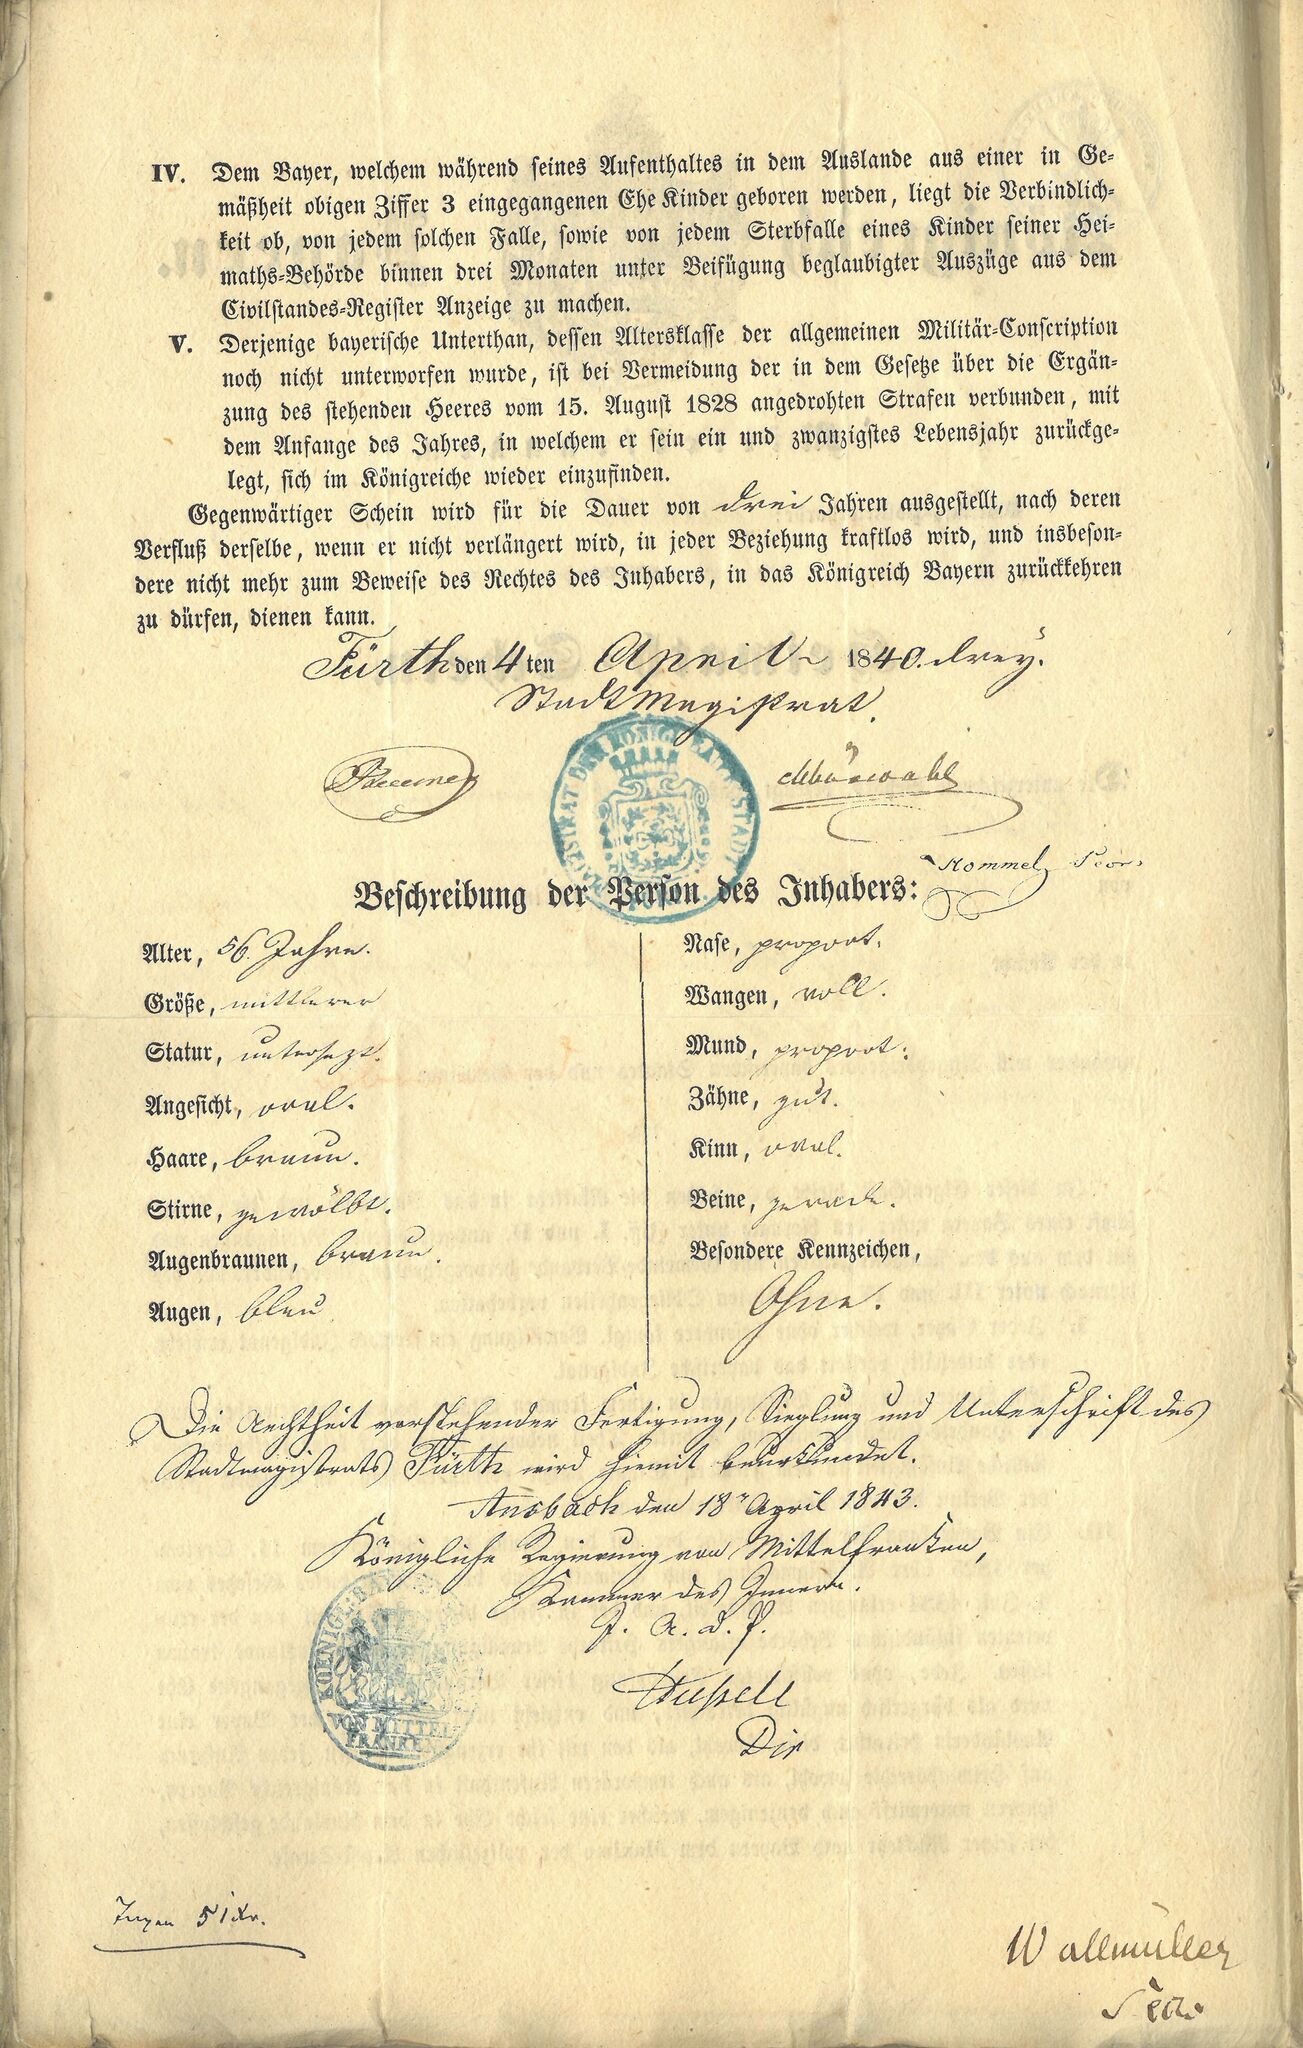 IV. Dem Bayer, welchem während seines Aufenthaltes in dem Auslande aus einer in Ge-
mäßheit obigen Ziffer 3 eingegangenen Ehe Kinder geboren werden, liegt die Verbindlich-
keit ob, von jedem solchen Falle, sowie von jedem Sterbfalle eines Kinder seiner Hei-
maths-Behörde binnen drei Monaten unter Beifügung beglaubigter Auszüge aus dem
Civilstandes-Register Anzeige zu machen.
V. Derjenige bayerische Unterthan, dessen Altersklasse der allgemeinen Militär-Conscription
noch nicht unterworfen wurde, ist bei Vermeidung der in dem Gesetze über die Ergän-
zung des stehenden Heeres vom 15. August 1828 angedrohten Strafen verbunden, mit
dem Anfange des Jahres, in welchem er sein ein und zwanzigstes Lebensjahr zurückge-
legt, sich im Königreiche wieder einzufinden.
Gegenwärtiger Schein wird für die Dauer von drei Jahren ausgestellt, nach deren
Verfluß derselbe, wenn er nicht verlängert wird, in jeder Beziehung kraftlos wird, und insbeson-
dere nicht mehr zum Beweise des Rechtes des Inhabers, in das Königreich Bayern zurückkehren
zu dürfen, dienen kann.
Fürth den 4ten April 1840. drey.
Stadtmagistrat.
Hommel
Beschreibung der Person des Inhabers:
Alter, 56. Jahre.
Größe, mittlerer
Statur, untersezt.
Angesicht, oval.
Haare, braun.
Stirne, gewölbt.
Augenbraunen, braun.
Augen, blau
Nase, proport.
Wangen, voll.
Mund, proport.
Zähne, gut.
Kinn, oval.
Beine, gerade.
Besondere Kennzeichen,
Ohne.
Die Aechtheit vorstehender Fertigung, Sieglung und Unterschrift des
Stadtmagistrats Fürth wird hiemit beurkundet.
Ansbach den 18n April 1843.
Königliche Regierung von Mittelfranken,
Kammer des Innern.
Dir
KOENIGL. BAY
VON MITTEL-
FRANKEN
51 Xr.
Wallmüller